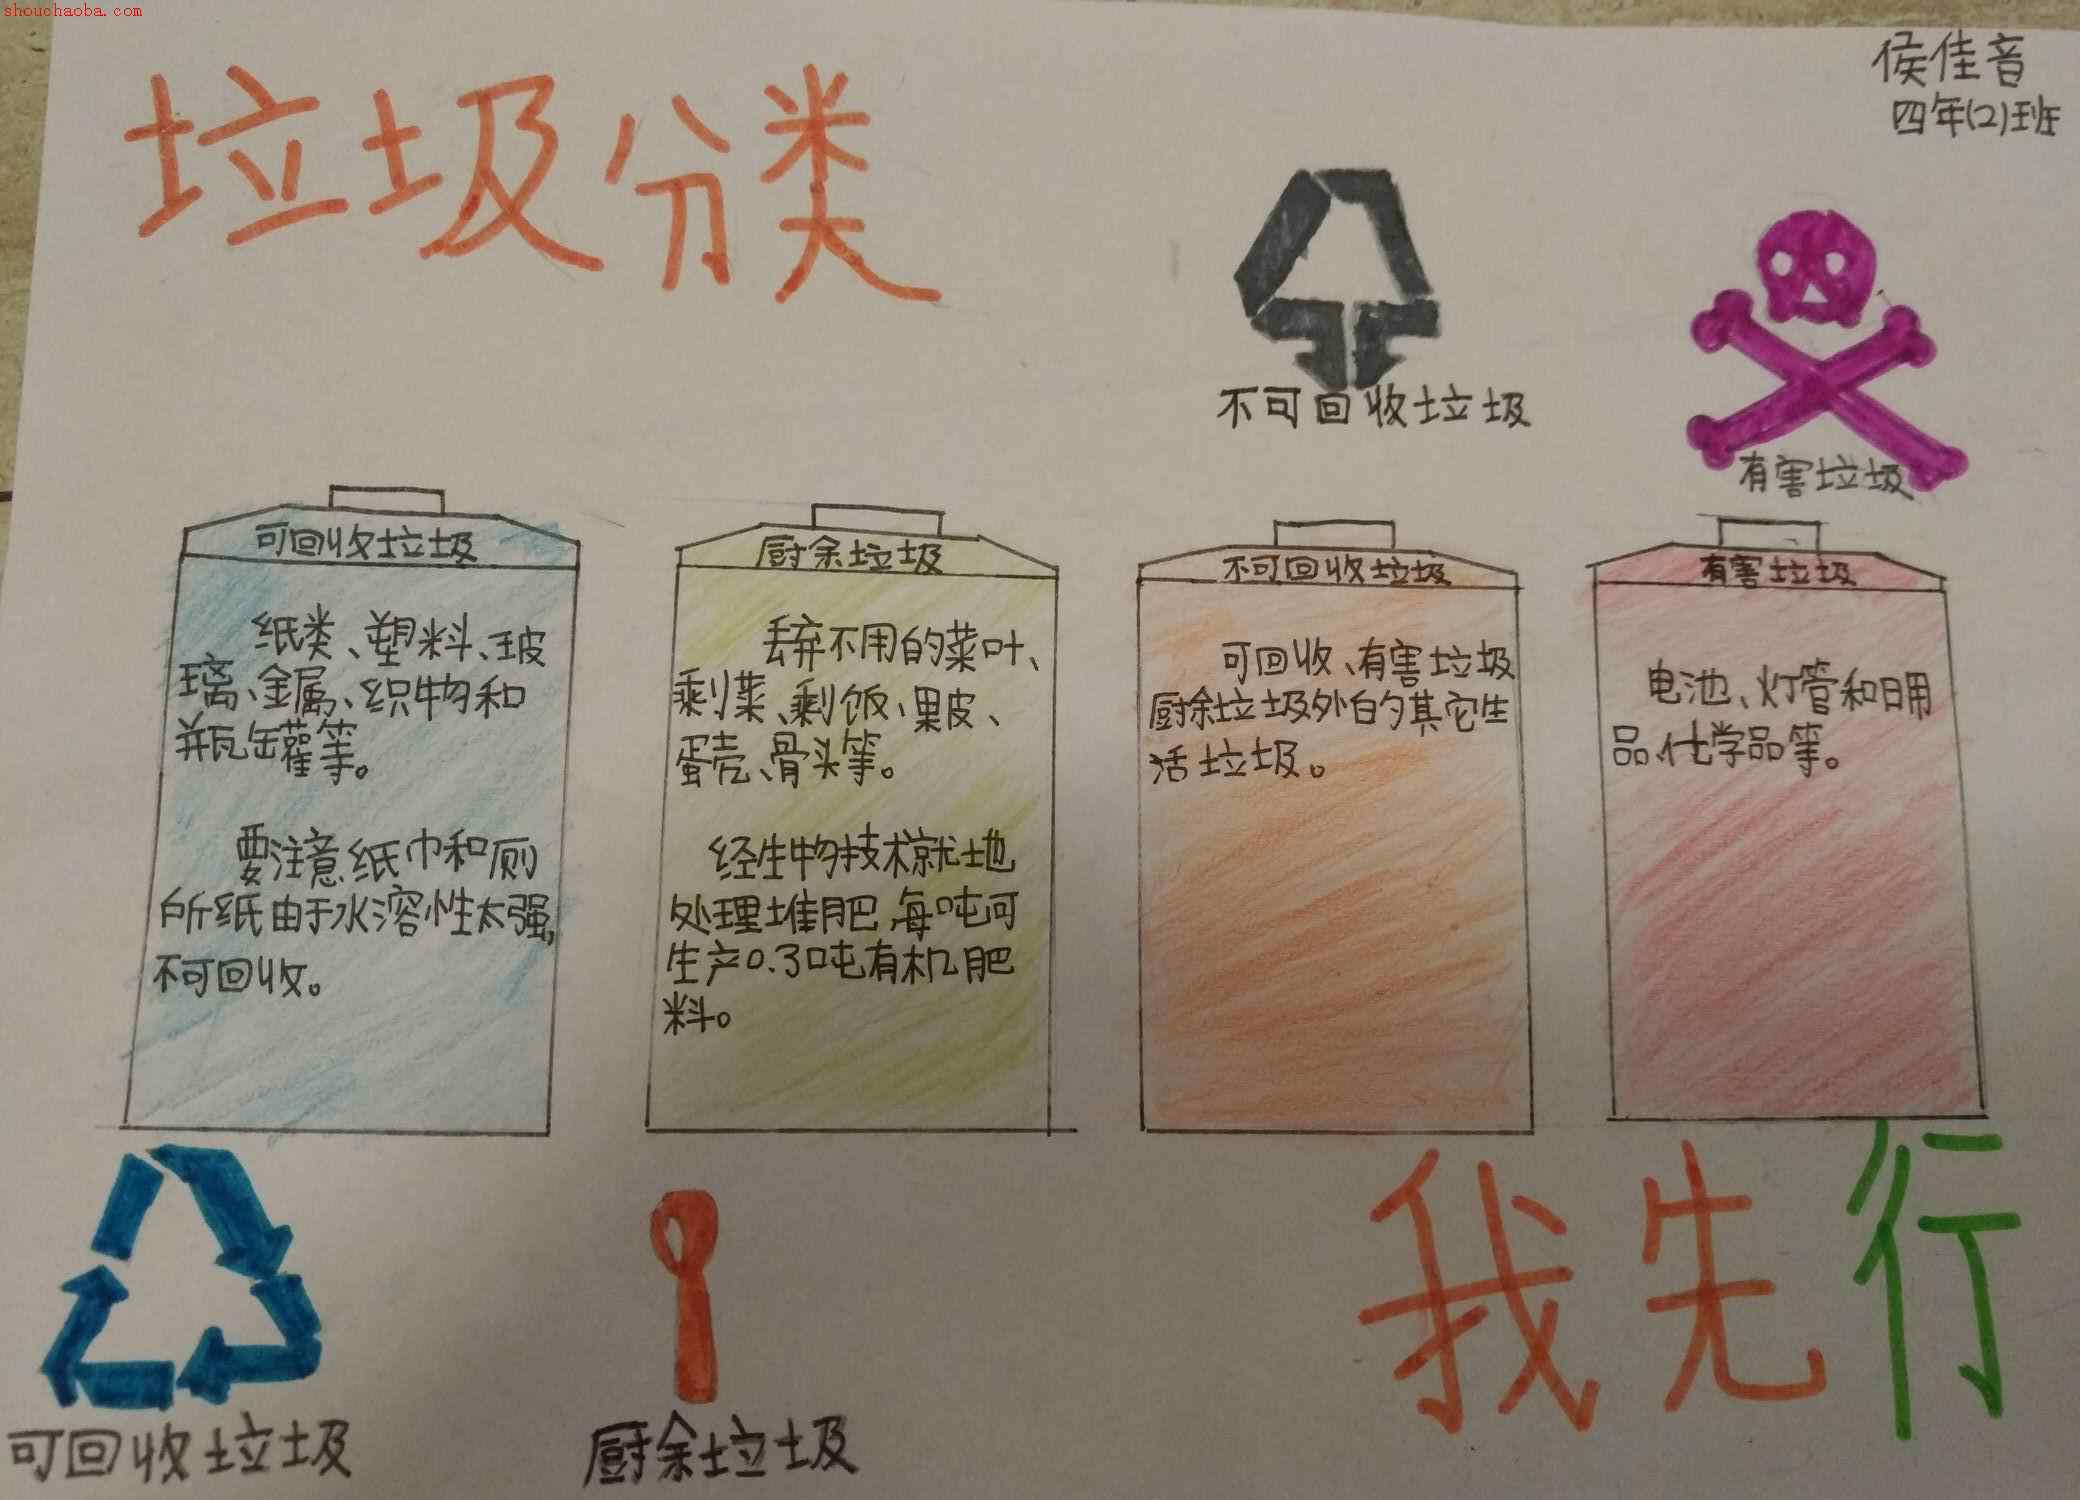 shouchaoba.com
侯佳音
四年(2)班
垃圾分类
不可回收垃圾
有害垃圾
可回收垃圾
纸类、塑料、玻
璃、金属、织物和
瓶缶罐等。
要注意纸巾和厕
所纸由于水溶性太强,
不可回收。
厨余垃圾
丢弃不用的菜叶、
剩菜、剩饭、果皮、
蛋壳、骨头等。
经生物技术就地
处理堆肥,每吨可
生产0.3吨有机肥
料。
不可回收垃圾
可回收、有害垃圾
厨余垃圾外的其它生
活垃圾。
有害垃圾
电池、灯管和日用
品、化学品等。
可回收垃圾
厨余垃圾
我先行